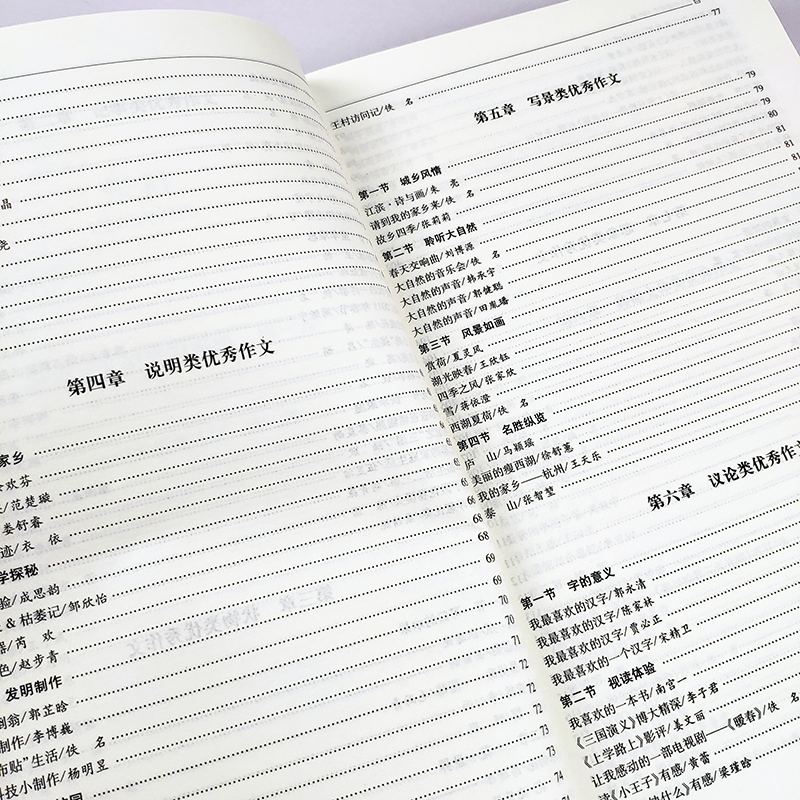 晶
尧
第四章 说明类优秀作文
家乡
欢芬
范楚璇
娄舒睿 68
迹/衣 依 68
学探秘 69
验/成思韵 69
& 枯萎记/邹欣怡 70
器/芮 欢 70
色/赵步青 71
发明制作 72
倒翁/郭芷晗 72
制作/李博巍 73
布贴”生活/佚 名 73
科技小制作/杨明昱 74
77
王村访问记/佚 名
第五章 写景类优秀作文
79
第一节 城乡风情 79
江滨·诗与画/朱 亮 80
请到我的家乡来/佚 名 81
故乡四季/张莉莉 81
第二节 聆听大自然
春天交响曲/刘博源
大自然的音乐会/佚 名
大自然的声音/韩承宇
大自然的声音/郭健聪
大自然的声音/田胤璠
第三节 风景如画
赏荷/夏灵风
湖光映春/王欣钰
四季之风/张家欣
雪/蒋依澄
西湖夏荷/佚 名
第四节 名胜纵览
庐 山/马颖瑶
美丽的瘦西湖/徐舒蕙
我的家乡——杭州/王天乐
泰 山/张智堃
第六章 议论类优秀作文
第一节 字的意义
我最喜欢的汉字/郭永清
我最喜欢的汉字/陈家林
我最喜欢的汉字/贾必正
我最喜欢的一个汉字/宋精卫
第二节 视读体验
我喜欢的一本书/南宫一
《三国演义》博大精深/李子君
《上学路上》影评/姜文丽
让我感动的一部电视剧——《暖春》/佚 名
读《小王子》有感/黄蕾
的什么》有感/梁瑾晗